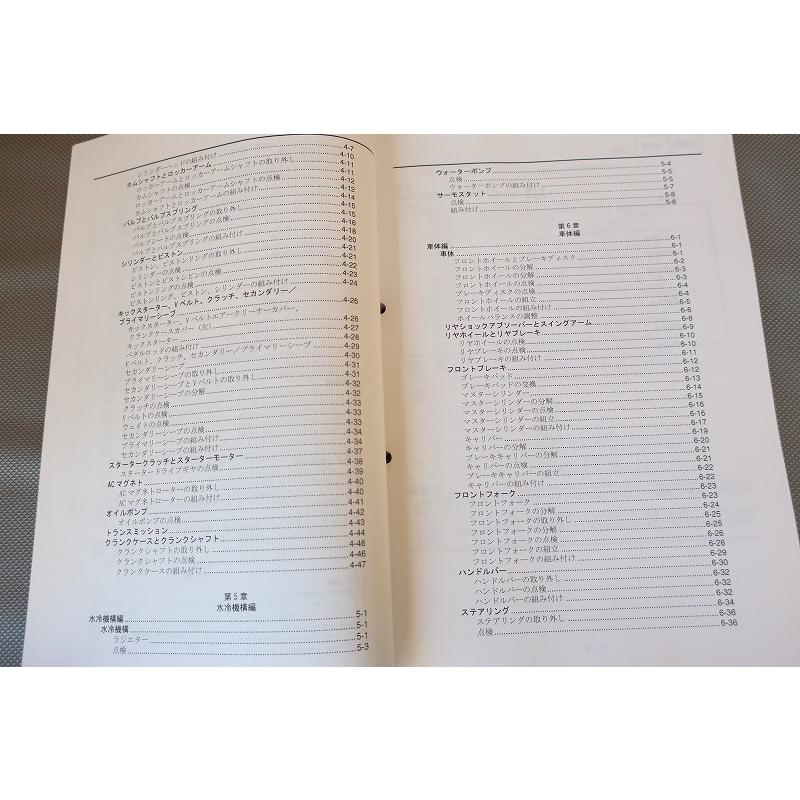 シリンダーヘッドの組み付け 4-7
カムシャフトとロッカーアーム 4-10
ロッカーアームとロッカーアームシャフトの取り外し 4-11
カムシャフトの点検 4-11
ロッカーアームとロッカーアームシャフトの点検 4-12
カムシャフトとロッカーアームの組み付け 4-12
バルブとバルブスプリング 4-14
バルブとバルブスプリングの取り外し 4-15
バルブとバルブスプリングの点検 4-15
バルブシートの点検 4-16
バルブとバルブスプリングの組み付け 4-18
シリンダーとピストン 4-20
ピストン、ピストンリングの取り外し 4-21
シリンダーの点検 4-21
ピストンとピストンピンの点検 4-22
ピストンリングの点検 4-23
ピストンリング、ピストン、シリンダーの組み付け 4-24
キックスターター、Vベルト、クラッチ、セカンダリー／
プライマリーシーブ 4-26
キックスターター、Vベルトエアークリーナーカバー、
クランクケースカバー（左） 4-26
キックスターター 4-27
ペダルロッドの組み付け 4-28
Vベルト、クラッチ、セカンダリー／プライマリーシーブ 4-29
セカンダリーシーブ 4-30
プライマリーシーブの取り外し 4-31
セカンダリーシーブとVベルトの取り外し 4-31
セカンダリーシーブの分解 4-32
クラッチの点検 4-32
Vベルトの点検 4-33
ウェイトの点検 4-33
セカンダリーシーブの点検 4-33
プライマリーシーブの組み付け 4-34
セカンダリーシーブの組み付け 4-34
スタータークラッチとスターターモーター 4-37
スタータードライブギヤの点検 4-38
ACマグネト 4-39
ACマグネトローターの取り外し 4-40
ACマグネトローターの組み付け 4-40
オイルポンプ 4-41
オイルポンプの点検 4-42
トランスミッション 4-43
クランクケースとクランクシャフト 4-44
クランクシャフトの取り外し 4-46
クランクシャフトの点検 4-46
クランクケースの組み付け 4-47
第5章
水冷機構編
水冷機構編 5-1
水冷機構 5-1
ラジエター 5-1
点検 5-3
ウォーターポンプ 5-4
点検 5-5
ウォーターポンプの組み付け 5-5
サーモスタット 5-7
点検 5-8
組み付け 5-8
第6章
車体編
車体編 6-1
車体 6-1
フロントホイールとブレーキディスク 6-1
フロントホイールの分解 6-2
フロントホイールの分解 6-3
フロントホイールの点検 6-3
ブレーキディスクの点検 6-4
フロントホイールの組立 6-4
フロントホイールの組み付け 6-5
ホイールバランスの調整 6-6
リヤショックアブソーバーとスイングアーム 6-8
リヤホイールとリヤブレーキ 6-9
リヤホイールの点検 6-10
リヤブレーキの点検 6-10
リヤブレーキの組み付け 6-11
フロントブレーキ 6-12
ブレーキパッド 6-12
ブレーキパッドの交換 6-13
マスターシリンダー 6-14
マスターシリンダーの分解 6-15
マスターシリンダーの点検 6-16
マスターシリンダーの組立 6-16
マスターシリンダーの組み付け 6-17
キャリパー 6-19
キャリパーの分解 6-20
ブレーキキャリパーの分解 6-21
キャリパーの点検 6-21
ブレーキキャリパーの組立 6-22
キャリパーの組み付け 6-22
フロントフォーク 6-23
フロントフォーク 6-23
フロントフォークの分解 6-24
フロントフォークの取り外し 6-25
フロントフォークの分解 6-25
フロントフォークの点検 6-26
フロントフォークの組立 6-26
フロントフォークの組み付け 6-29
ハンドルバー 6-30
ハンドルバーの取り外し 6-32
ハンドルバーの点検 6-32
ハンドルバーの組み付け 6-32
ステアリング 6-34
ステアリングの取り外し 6-36
点検 6-36